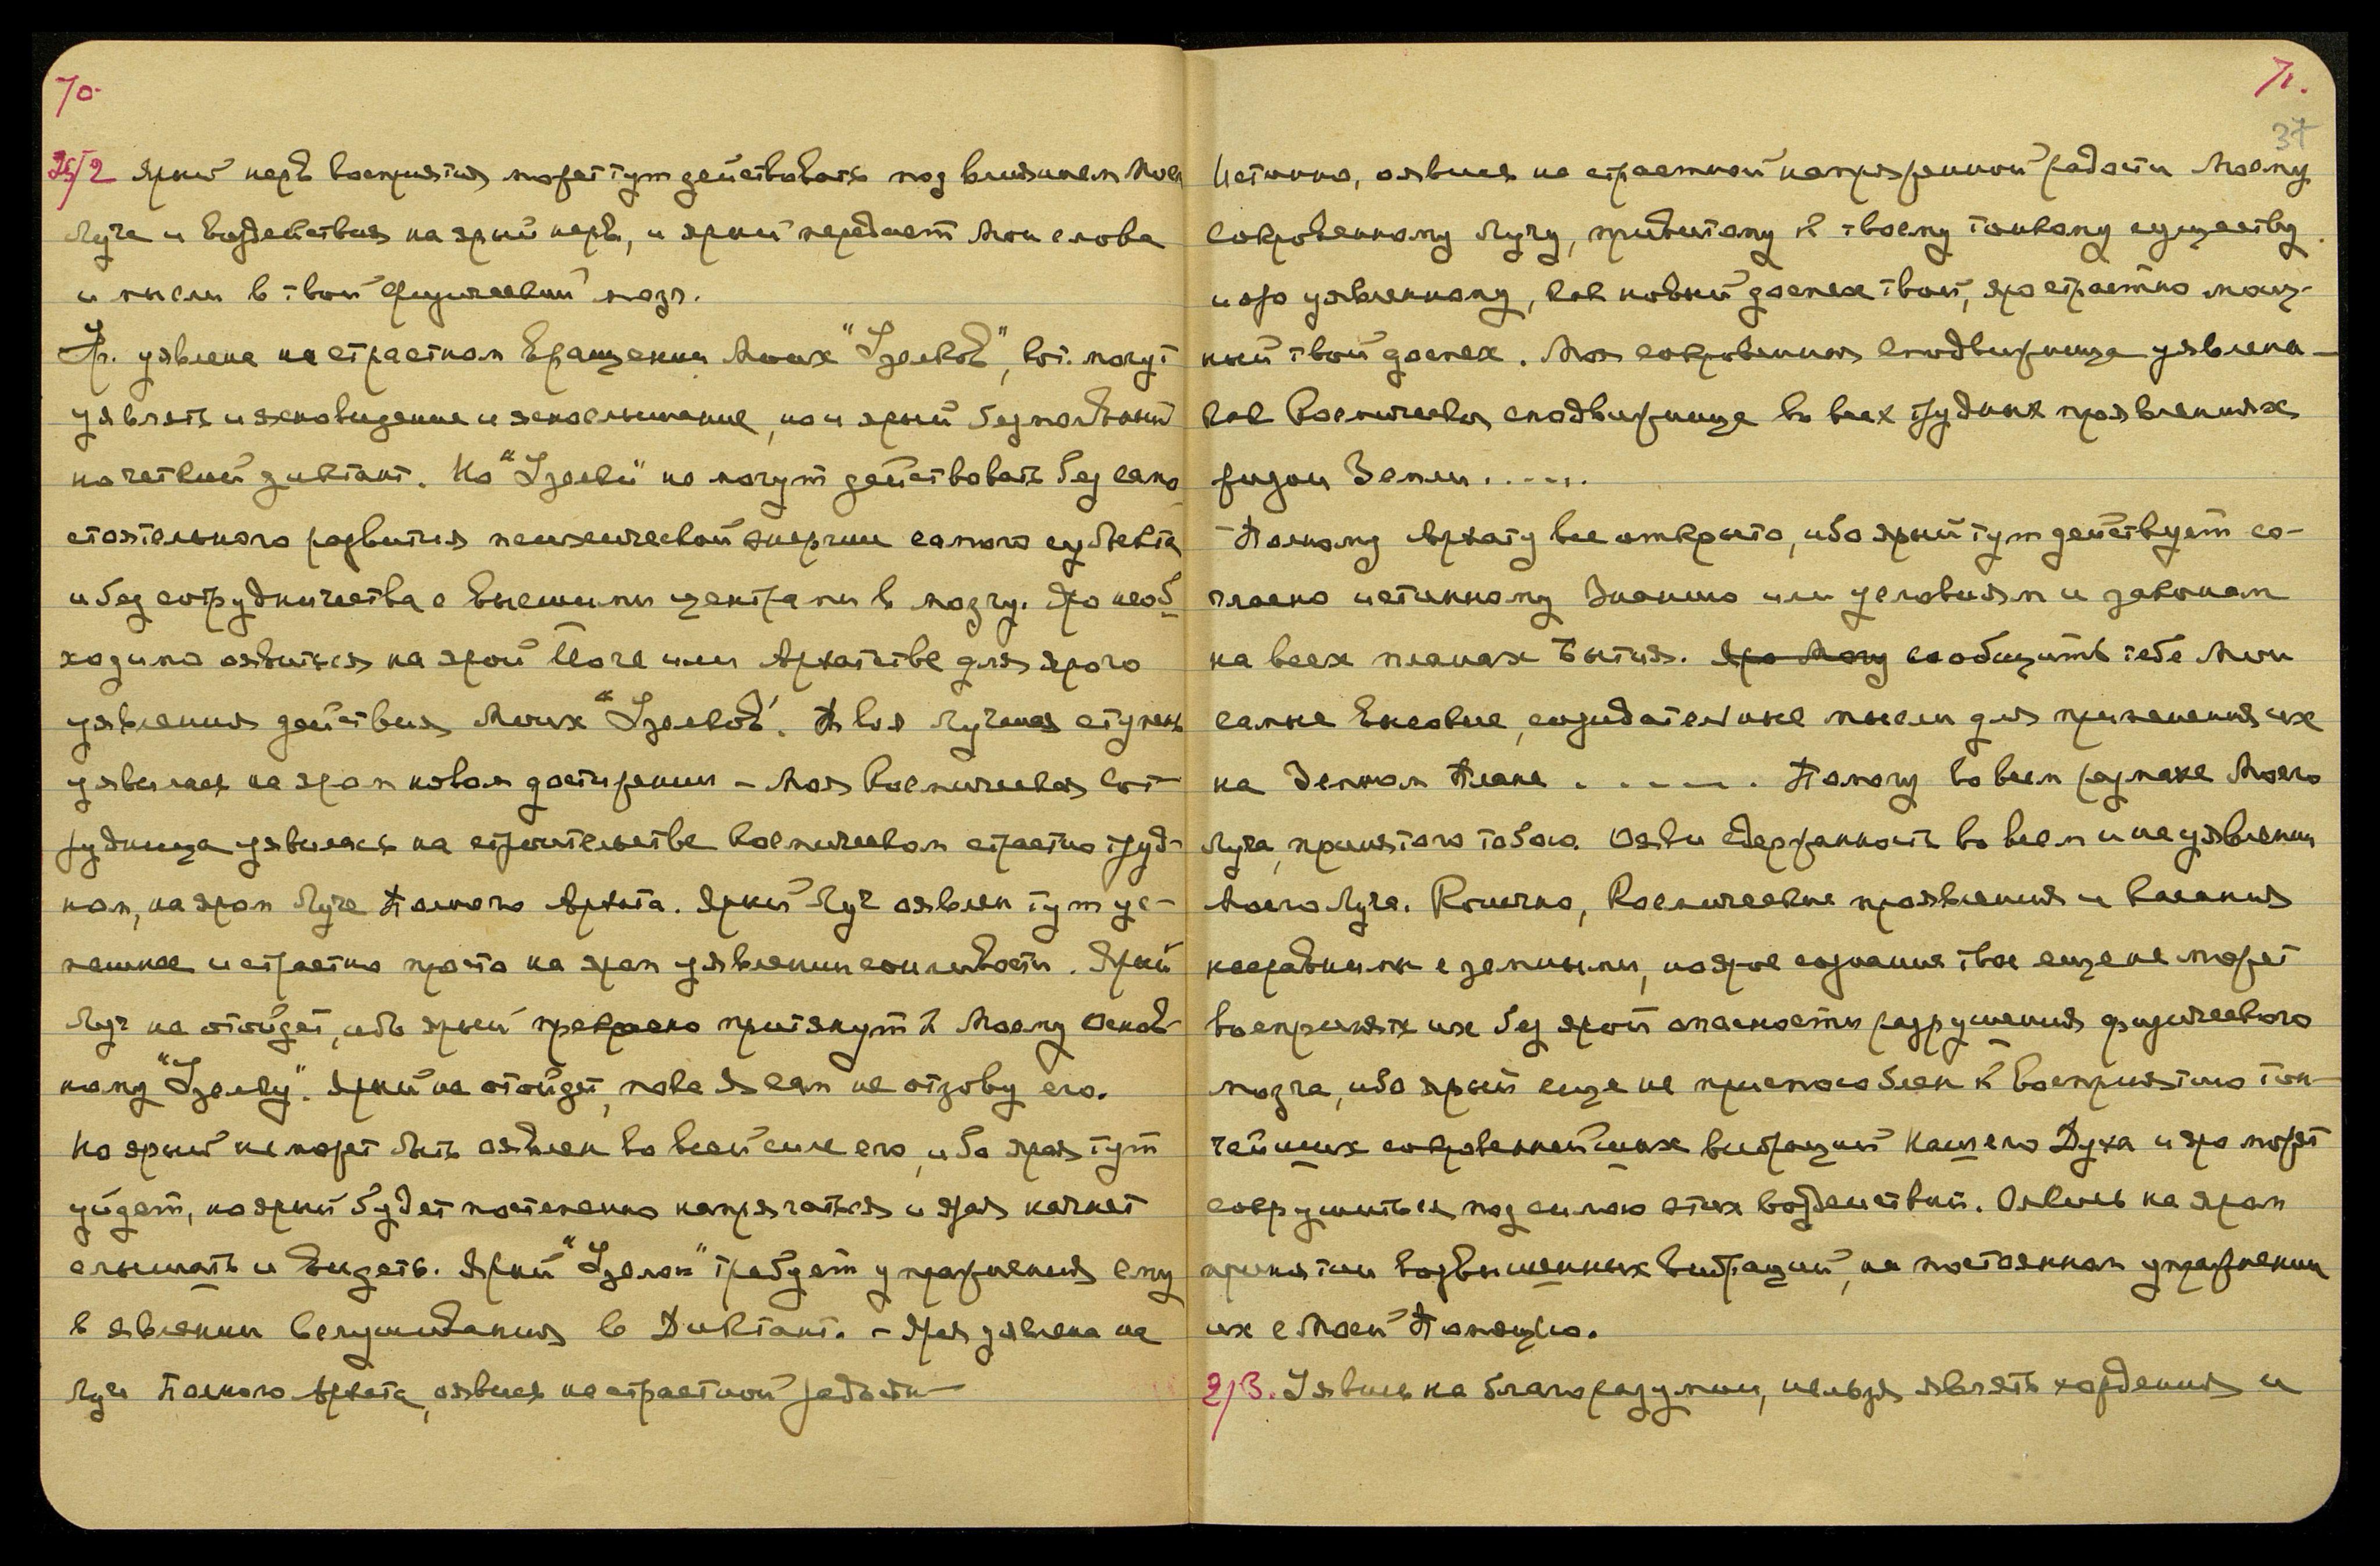 70
25/2 Яркий нерв восприятия может тут действовать под влиянием Моего
Луча и воздействия на ярый нерв, и яркий передает Мои слова
и мысли в твой физический мозг.
Ур. уявлена на страстном Вращении Моих "Узелков", кот. могут
уявлять и ясновидение и яснослышание, но и ярый безмолвный
но четкий диктант. Но "Узелки" не могут действовать без само
стоятельного развития психической энергии самого субъекта
и без сотрудничества с высшими центрами в мозгу. Яро необ
ходимо оявиться на ярой Йоге или Архатстве для ярого
уявления действия Моих "Узелков". Твоя Лучшая ступень
уявилась на яром новом достижении – Моя Космическая Сот-
рудница уявилась на строительстве Космическом страстно труд-
ном, на яром Луче Полного Архата. Яркий Луч оявлен тут ус-
пешнее и страстно просто на яром уявлении сонливости. Яркий
Луч не отойдет, ибо ярый прекрасно притянут к Моему Основ-
ному "Узелку". Яркий не отойдет, пока Я сам не отзову его.
Но ярый не может быть оявлен во всей силе его, ибо ярая тут
уйдет, но ярый будет постепенно напрягаться и ярая начнет
слышать и видеть. Яркий "Узелок" требует упражнения ему
в явлении вслушивания в Диктант. – Ярая уявлена на
Луче Полного Архата, оявись на страстной радости
71.
37
Истинно, оявись на страстной напряженной радости Моему
сокровенному Лучу, привитому к твоему тонкому существу
и яро уявленному, как новый доспех твой, яро страстно мощ-
ный твой доспех. Моя сокровенная сподвижница уявлена –
как Космическая сподвижница во всех трудных проявлениях
жизни Земли......
– Полному Архату все открыто, ибо ярый тут действует со-
гласно истинному Знанию или условиям и законам
на всех планах Бытия. Яро Могу сообщить тебе Мои
самые высокие, созидательные мысли для применения их
на Земном Плане . . – – . Помогу во всем размахе Моего
Луча, принятого тобою. Ояви сдержанность во всем и на уявлении
Моего Луча. Конечно, Космические проявления и касания
несравнимы с земными, но ярое сознание твое еще не может
воспринять их без ярой опасности разрушения физического
мозга, ибо ярый еще не приспособлен к восприятию тон-
чайших сокровеннейших вибраций Нашего Духа и яро может
сокрушиться под силою этих воздействий. Оявись на яром
принятии возвышенных вибраций, на постоянном упражнении
их с Моей Помощью.
2/3. Уявись на благоразумии, нельзя являть хождения и